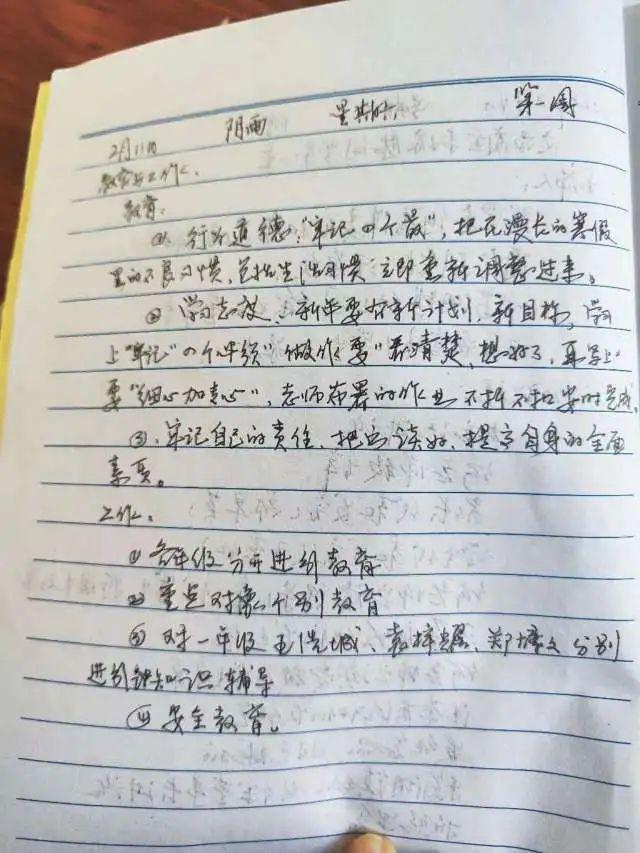 2月11日 阴雨 星期 第一周
教育与工作。
教育:
①、行为道德:"牢记四个最",把在漫长的寒假
里的不良习惯,包括生活习惯 立即重新调整过来。
② 学习态度、新年要有新计划,新目标,学习
上"牢记"四个必须"做作业要"看清楚,想好了,再写上"
要"细心加责心",老师布署的作业 不折不扣 按时完成
③、牢记自己的责任、把书读好、提高自身的全面
素质。
工作:
① 各年级分开进行教育
② 重点对像个别教育
③ 对一年级 王 城、袁梓 、郑 文 分别
进行 知识辅导
④ 安全教育。